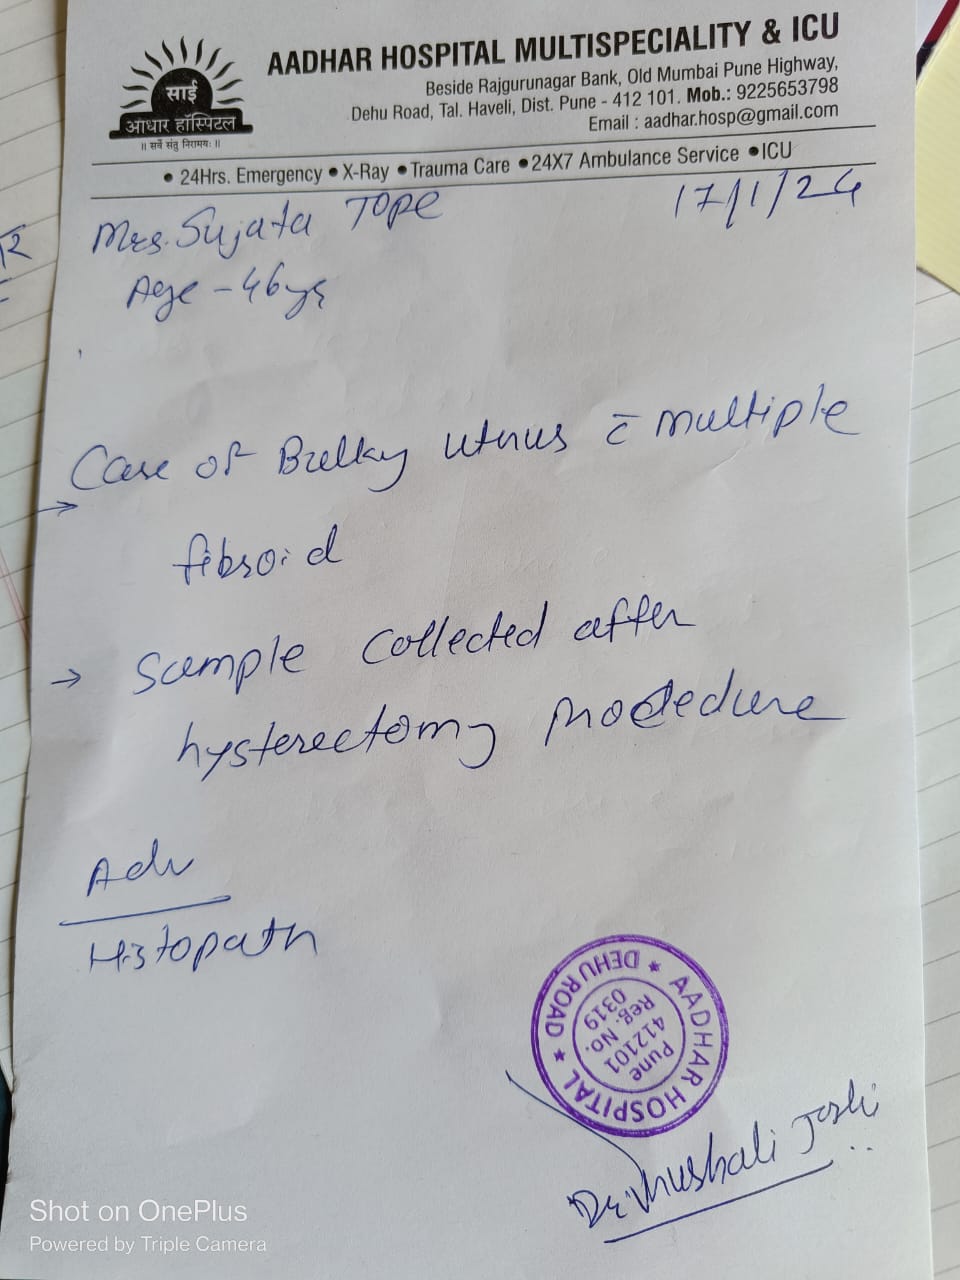 साई
आधार हॉस्पिटल
॥ सर्वे संतु निरामयः ॥
AADHAR HOSPITAL MULTISPECIALITY & ICU
Beside Rajgurunagar Bank, Old Mumbai Pune Highway,
Dehu Road, Tal. Haveli, Dist. Pune - 412 101. Mob.: 9225653798
Email : aadhar.hosp@gmail.com
• 24Hrs. Emergency • X-Ray • Trauma Care • 24X7 Ambulance Service • ICU
17/1/24
Mrs. Sujata Tope
Age - 46yrs
Case of Bulky uterus c̄ multiple
→
fibroid
→ Sample collected after
hysterectomy procedure
Adv
Histopath
AADHAR HOSPITAL * DEHU ROAD *
Pune
412101
Reg. No.
0319
Dr. Vrushali Joshi
Shot on OnePlus
Powered by Triple Camera